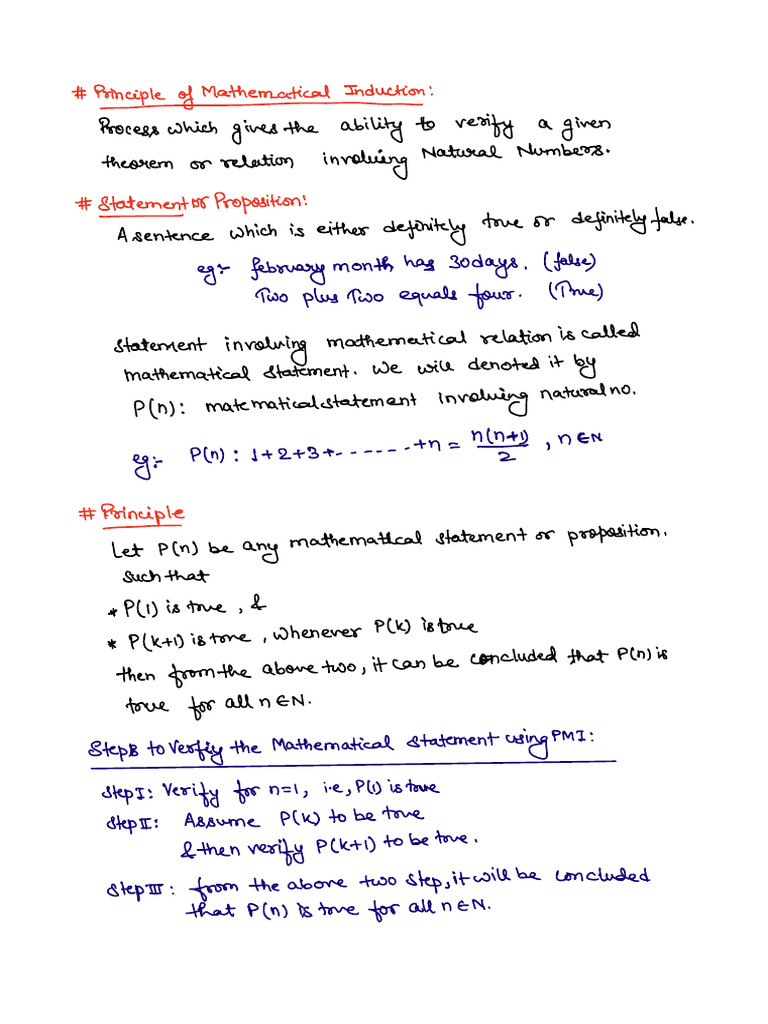 # Principle of Mathematical Induction:
Process which gives the ability to verify a given
theorem or relation involving Natural Numbers.
# Statement or Proposition:
A sentence which is either definitely true or definitely false.
eg:- february month has 30 days. (false)
Two plus Two equals four. (True)
Statement involving mathematical relation is called
mathematical statement. We will denoted it by
P(n): matematical statement involving natural no.
eg:- P(n): 1+2+3+-------+n = n(n+1)/2, n∈N
# Principle
Let P(n) be any mathematical statement or proposition.
such that
* P(1) is true, &
* P(k+1) is true, whenever P(k) is true
then from the above two, it can be concluded that P(n) is
true for all n∈N.
Steps to Verfiy the Mathematical Statement using PMI:
Step I: Verify for n=1, i.e, P(1) is true
Step II: Assume P(k) to be true
& then verify P(k+1) to be true.
Step III: from the above two step, it will be concluded
that P(n) is true for all n∈N.